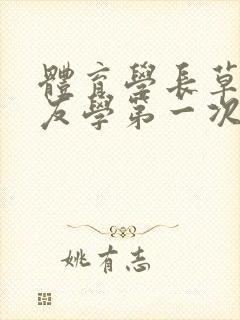 體育學長草
友學第一次
姚有志